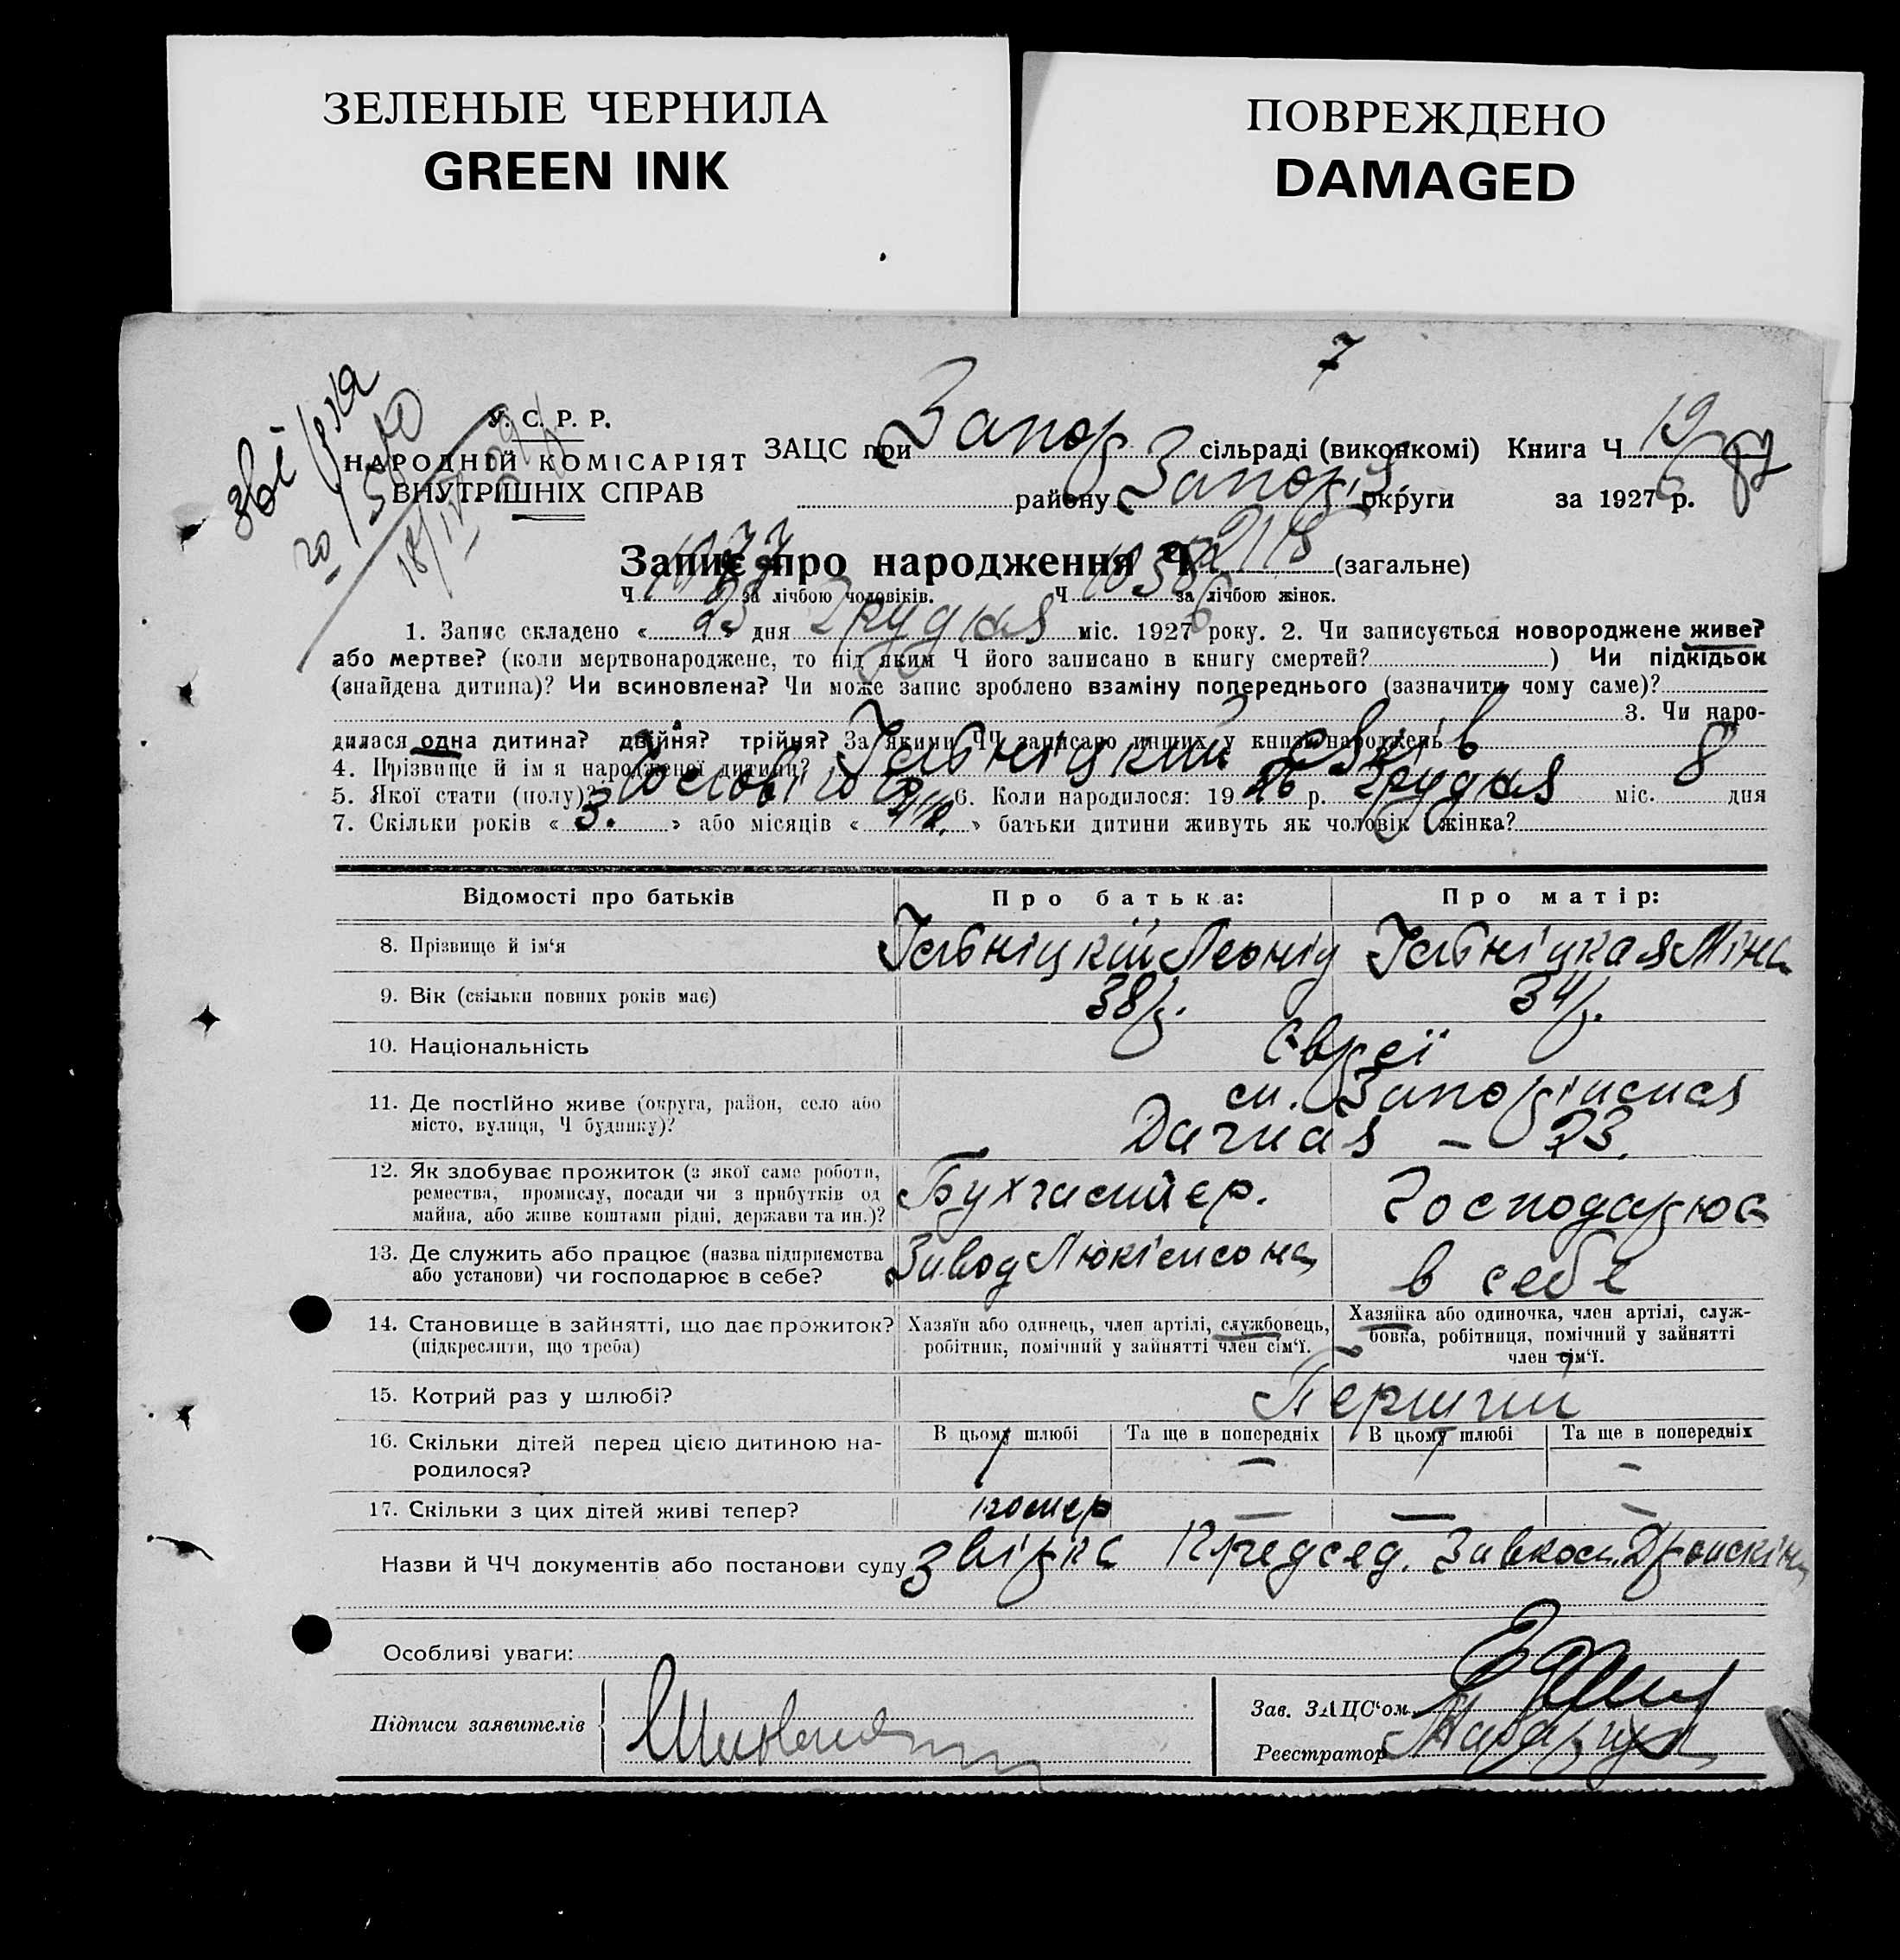 ЗЕЛЕНЫЕ ЧЕРНИЛА
GREEN INK
ПОВРЕЖДЕНО
DAMAGED
7
У. С. Р. Р.
НАРОДНІЙ КОМІСАРІЯТ
ВНУТРІШНІХ СПРАВ
ЗАЦС при Запор сільраді (виконкомі) Книга Ч 19
району Запоріз округи за 1927 р.
Запис про народження Ч 2115 (загальне)
Ч 1077 за лічбою чоловіків. Ч 1038 за лічбою жінок.
1. Запис складено « 23 » дня Грудня міс. 1926 року. 2. Чи записується новороджене живе?
або мертве? (коли мертвонароджене, то під яким Ч його записано в книгу смертей? ) Чи підкідьок
(знайдена дитина)? Чи всиновлена? Чи може запис зроблено взаміну попереднього (зазначити чому саме)?
3. Чи наро-
дилася одна дитина? двійня? трійня? За якими ЧЧ записано инших у книзі народжень
4. Прізвище й ім я народженої дитини?
5. Якої стати (полу)? Чоловічого 6. Коли народилося: 1926 р. Грудня міс. 8 дня
7. Скільки років « 3. » або місяців « » батьки дитини живуть як чоловік і жінка?
Відомості про батьків
Про батька:
Про матір:
8. Прізвище й ім‘я Леонід Міна
9. Вік (скільки повних років має) 38 р. 34 р.
10. Національність Євреї
11. Де постійно живе (округа, район, село або
місто, вулиця, Ч будинку)?
ст. Запоріжжя
Дачная – 23.
12. Як здобуває прожиток (з якої саме роботи,
ремества, промислу, посади чи з прибутків од
майна, або живе коштами рідні, держави та ин.)?
Бухгалтер. Господарює
13. Де служить або працює (назва підприємства
або установи) чи господарює в себе?
Завод в себе
14. Становище в зайнятті, що дає прожиток?
(підкреслити, що треба)
Хазяїн або одинець, член артілі, службовець,
робітник, помічний у зайнятті член сім‘ї.
Хазяйка або одиночка, член артілі, служ-
бовка, робітниця, помічний у зайнятті
член сім‘ї.
15. Котрий раз у шлюбі? Перший
16. Скільки дітей перед цією дитиною на-
родилося?
В цьому шлюбі Та ще в попередніх В цьому шлюбі Та ще в попередніх
1 – 1 –
17. Скільки з цих дітей живі тепер? помер – – –
Назви й ЧЧ документів або постанови суду
Особливі уваги:
Підписи заявителів
Зав. ЗАЦС‘ом
Реєстратор